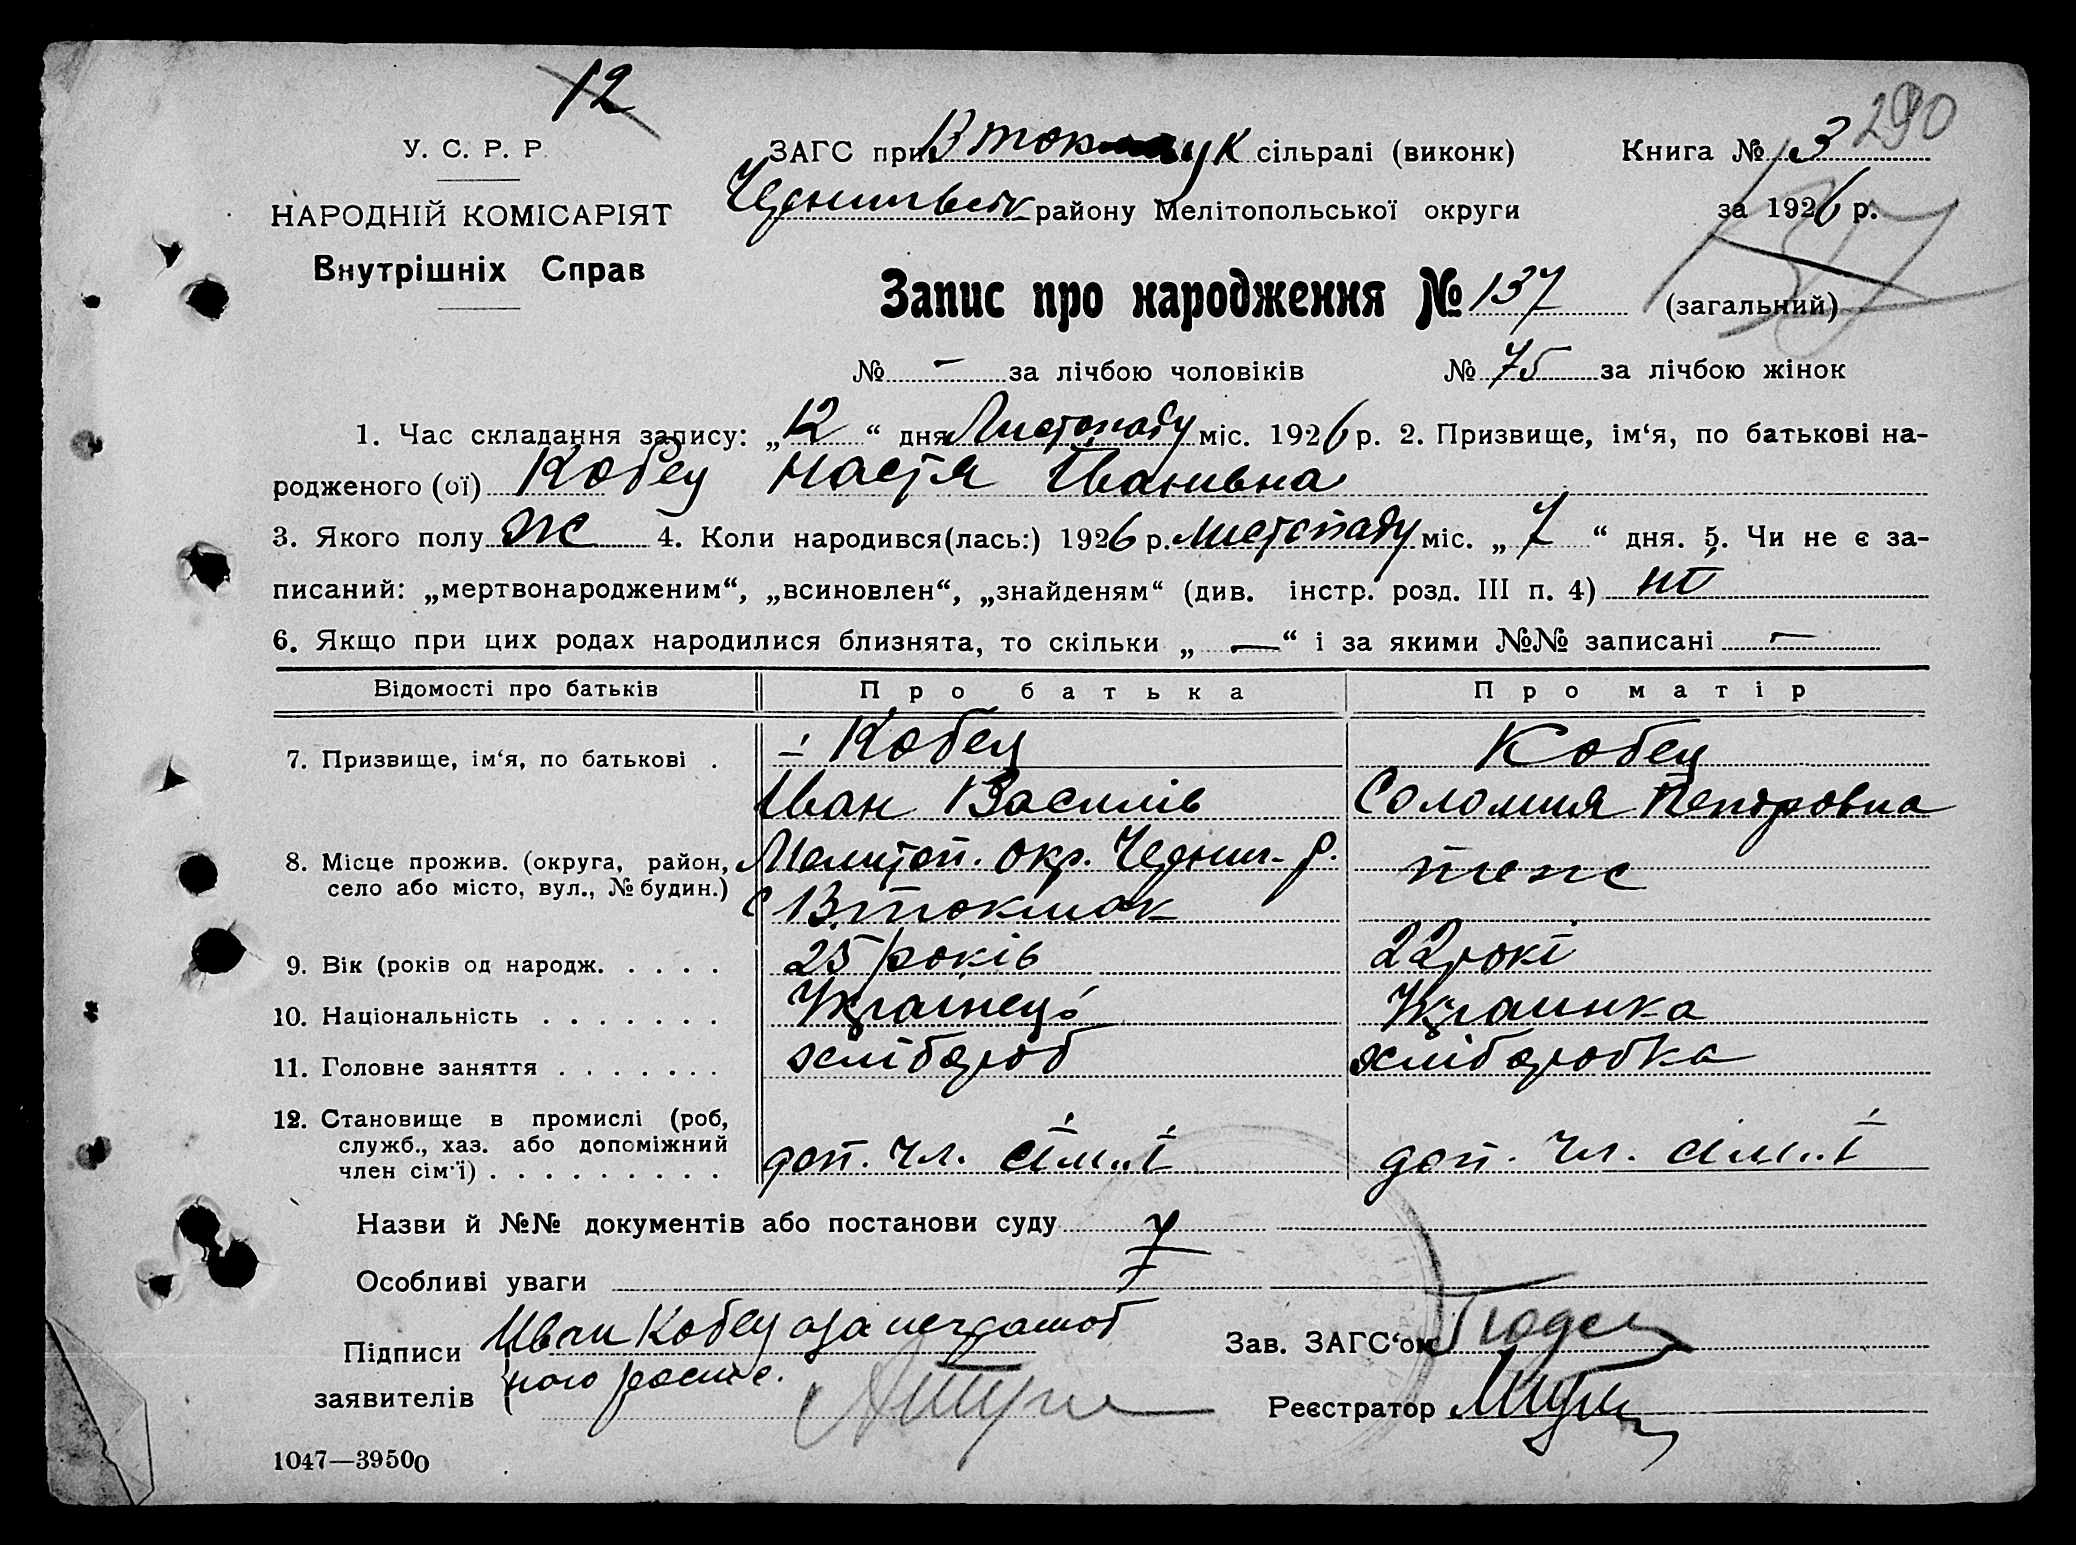 12
290
У. С. Р. Р.
НАРОДНІЙ КОМІСАРІЯТ
Внутрішніх Справ
ЗАГС при В токмаук сільраді (виконк) Книга № 3
району Мелітопольської округи за 1926 р.
137
Запис про народження № 137 (загальний)
№ – за лічбою чоловіків № 75 за лічбою жінок
1. Час складання запису: „12“ дня Листопаду міс. 1926 р. 2. Призвище, ім‘я, по батькові на-
родженого (ої) Кобец Настя Іванивна
3. Якого полу ж 4. Коли народився(лась:) 1926 р. листопаду міс. „7“ дня. 5. Чи не є за-
писаний: „мертвонародженим“, „всиновлен“, „знайденям“ (див. інстр. розд. III п. 4) ні
6. Якщо при цих родах народилися близнята, то скільки „—“ і за якими №№ записані —
Відомості про батьків Про батька Про матір
7. Призвище, ім‘я, по батькові . Кобец Кобец
Иван Василів Соломия Петровна
8. Місце прожив. (округа, район, Мелитоп. окр. Черниг. р. теж
село або місто, вул., № будин.) с В токмак
9. Вік (років од народж. . . . . 25 років 22 рокі
10. Національність . . . . . . . Українець Украинка
11. Головне заняття . . . . . . . хлібороб хліборобка
12. Становище в промислі (роб,
служб., хаз. або допоміжний
член сім‘ї) . . . . . . . . . доп. чл. сім'ї доп. чл. сім'ї
Назви й №№ документів або постанови суду
Особливі уваги
Підписи Иван Кобец а за неграмот
заявителів ного роспис.
Зав. ЗАГС‘ом
Реєстратор
1047—39500